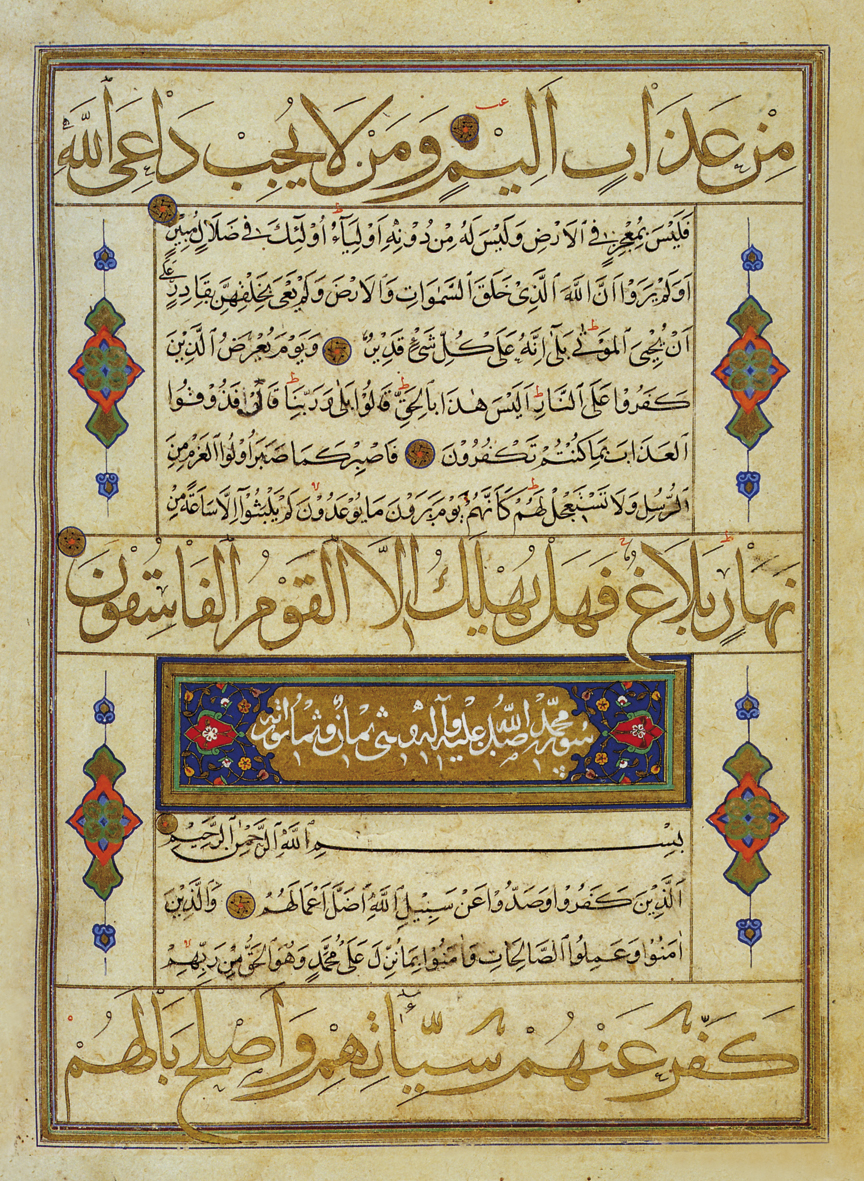 مِنْ عَذَابٍ اَلِيمٍ وَمَنْ لَا يُجِبْ دَاعِيَ اللّٰهِ
فَلَيْسَ بِمُعْجِزٍ فِي الْاَرْضِ وَلَيْسَ لَهُ مِنْ دُونِهٖ اَوْلِيَآءُ اُولٰٓئِكَ فِي ضَلَالٍ مُبِينٍ
اَوَلَمْ يَرَوْا اَنَّ اللّٰهَ الَّذِي خَلَقَ السَّمٰوَاتِ وَالْاَرْضَ وَلَمْ يَعْيَ بِخَلْقِهِنَّ بِقَادِرٍ عَلٰٓى
اَنْ يُحْيِيَ الْمَوْتٰى بَلٰٓى اِنَّهُ عَلٰى كُلِّ شَيْءٍ قَدِيرٌ وَيَوْمَ يُعْرَضُ الَّذِينَ
كَفَرُوا عَلَى النَّارِ اَلَيْسَ هٰذَا بِالْحَقِّ قَالُوا بَلٰى وَرَبِّنَا قَالَ فَذُوقُوا
الْعَذَابَ بِمَا كُنْتُمْ تَكْفُرُونَ فَاصْبِرْ كَمَا صَبَرَ اُولُوا الْعَزْمِ مِنَ
الرُّسُلِ وَلَا تَسْتَعْجِلْ لَهُمْ كَاَنَّهُمْ يَوْمَ يَرَوْنَ مَا يُوعَدُونَ لَمْ يَلْبَثُوٓا اِلَّا سَاعَةً مِنْ
نَهَارٍ بَلَاغٌ فَهَلْ يُهْلَكُ اِلَّا الْقَوْمُ الْفَاسِقُونَ
سورة محمد صلى الله عليه وآله وهي ثمان وثلاثون آية
بِسْمِ اللّٰهِ الرَّحْمٰنِ الرَّحِيمِ
الَّذِينَ كَفَرُوا وَصَدُّوا عَنْ سَبِيلِ اللّٰهِ اَضَلَّ اَعْمَالَهُمْ وَالَّذِينَ
اٰمَنُوا وَعَمِلُوا الصَّالِحَاتِ وَاٰمَنُوا بِمَا نُزِّلَ عَلٰى مُحَمَّدٍ وَهُوَ الْحَقُّ مِنْ رَبِّهِمْ
كَفَّرَ عَنْهُمْ سَيِّاٰتِهِمْ وَاَصْلَحَ بَالَهُمْ